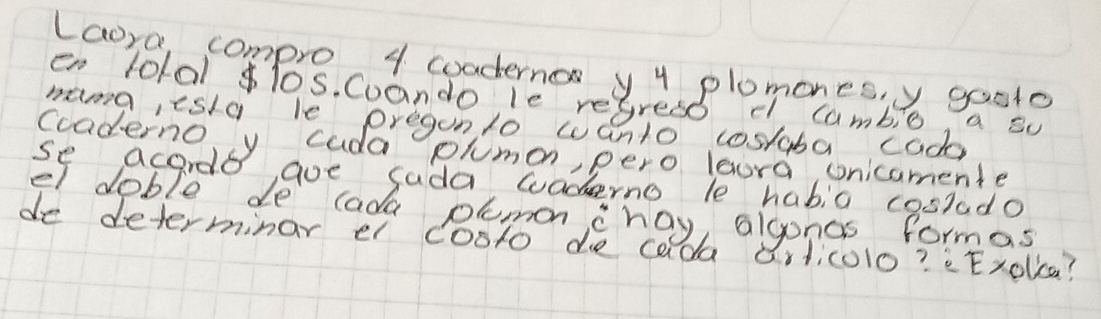 Laora compro 4 coadernos y 4 plomones, y gasto
en total $105. Coando le regreso el cambio a su
mama, esta le pregonto cuanto costaba cada
cuaderno y cada plumon, pero laora onicamente
se acordo que cada cuaderno le habia costado
el doble de cada plumon ¿hay algonas formas
de determinar el costo de cada articolo? ¿Explica?